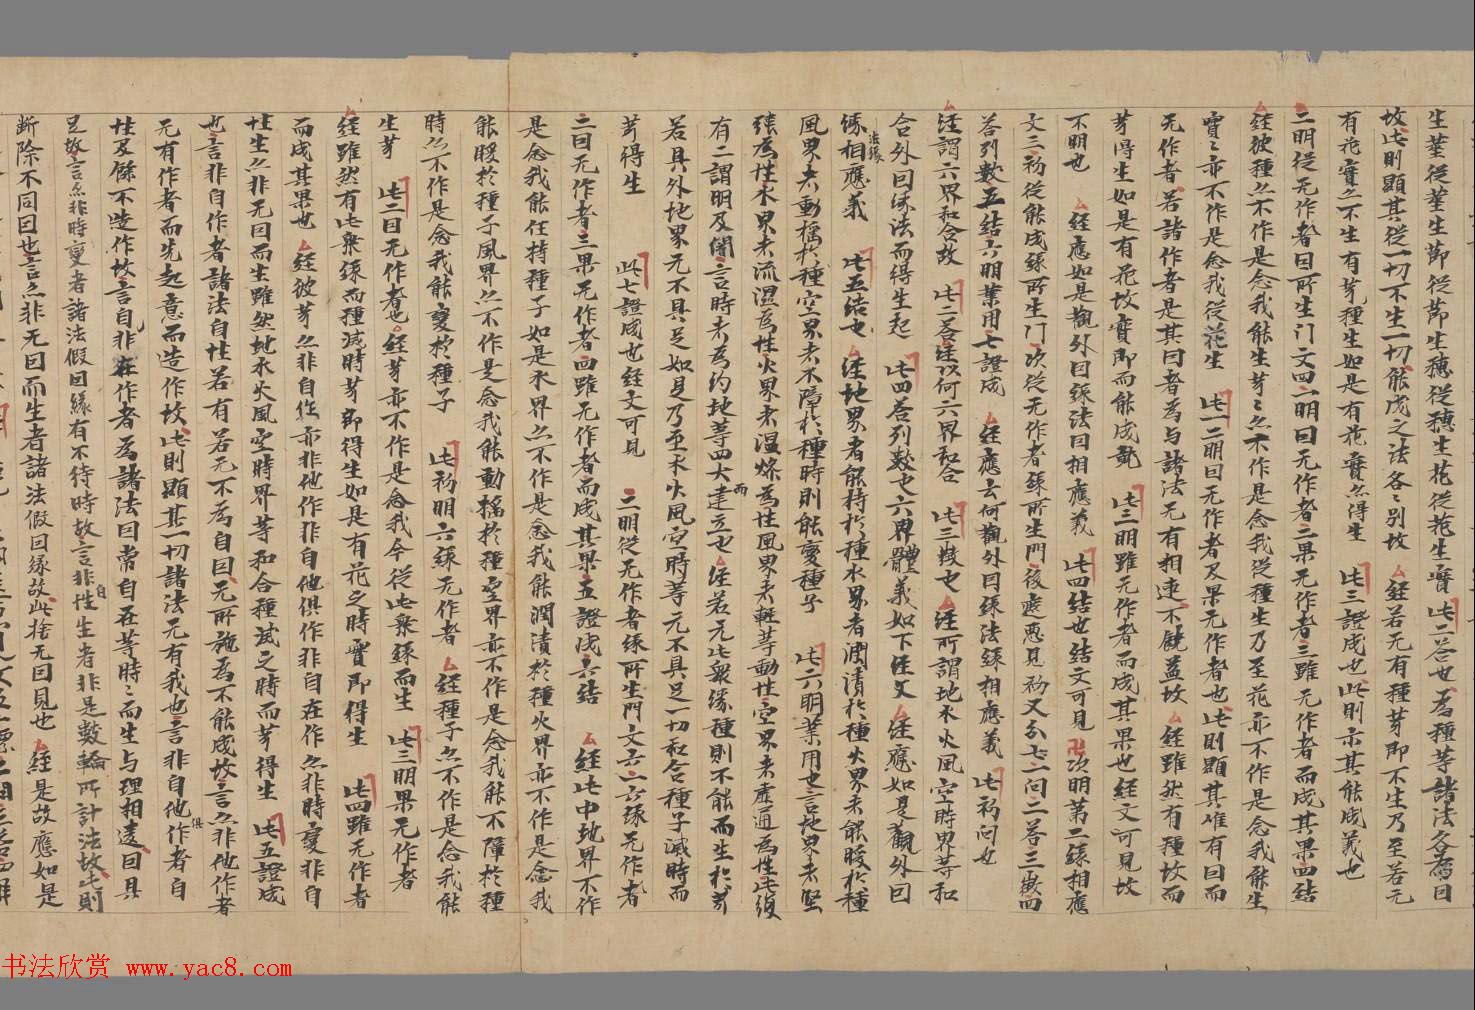 生莖從莖生節從節生穗從穗生花從花生實 此二答也為種等諸法各為因
故此則顯其從一切不生一切能成之法各〻別故 經若无有種芽即不生乃至若无
有花實亦不生有芽種生如是有花實亦得生 此三證成也此則示其能成義也
二明從无作者因所生门文四一明因无作者二果无作者三雖无作者而成其果四結
經彼種亦不作是念我能生芽〻亦不作是念我從種生乃至花亦不作是念我能生
實〻亦不作是念我從花生 此一二明因无作者及果无作者也此則顯其唯有因而
无作者若諸作者是其因者為与諸法无有相違不饒益故 經雖然有種故而
芽得生如是有花故實即而能成就 此三明雖无作者而成其果也經文可見故
不明也 經應如是觀外因緣法因相應義 此四結也結文可見 次明第二緣相應
文三初從能成緣所生门次從无作者緣所生門後處惡見初文分七一問二答三徵四
答列數五結六明業用七證成 經應云何觀外因緣法緣相應義 此初問也
經謂六界和合故 此二答經以何六界和合 此三徵也 經所謂地水火風空時界等和
合外因緣法而得生起 此四答列數也六界體義如下經文 經應如是觀外因
緣法緣相應義 此五結也 經地界者能持於種水界者潤漬於種火界者能暖於種
風界者動搖於種空界者不障於種時則能變種子 此六明業用也言地界者堅
強為性水界者流濕為性火界者溫燥為性風界者輕等動性空界者虛通為性此復
有二謂明及闇言時者為約地等四大而建立也 經若无此衆緣種則不能而生於芽
若具外地界无不具足如是乃至水火風空時等无不具足一切和合種子滅時而
芽得生 此七證成也經文可見 二明從无作者緣所生門文六一六緣无作者
二因无作者三果无作者四雖无作者而成其果五證成六結 經此中地界不作
是念我能任持種子如是水界亦不作是念我能潤漬於種火界亦不作是念我
能暖於種子風界亦不作是念我能動搖於種空界亦不作是念我能不障於種
時亦不作是念我能變於種子 此初明六緣无作者 經種子亦不作是念我能
生芽 此二因无作者也 經芽亦不作是念我今從此衆緣而生 此三明果无作者
經雖然有此衆緣而種滅時芽即得生如是有花之時實即得生 此四雖无作者
而成其果也 經彼芽亦非自作亦非他作非自他俱作非自在作亦非時變非自
性生亦非无因而生雖然地水火風空時界等和合種滅之時而芽得生 此五證成
也言非自作者諸法自性若有若无不為自因无所施為不能成故言亦非他作者
无有作者而先起意而造作故此則顯其一切諸法无有我也言非自他俱作者自
性及餘不造作故言自非在作者為諸法因常自在等時〻而生与理相違因具
足故言亦非時變者諸法假因緣有不待時故言非自性生者非是數輪所計法故此則
斷除不同因也言亦非无因而生者諸法假因緣故此捨无因見也 經是故應如是
书法欣赏 www.yac8.com